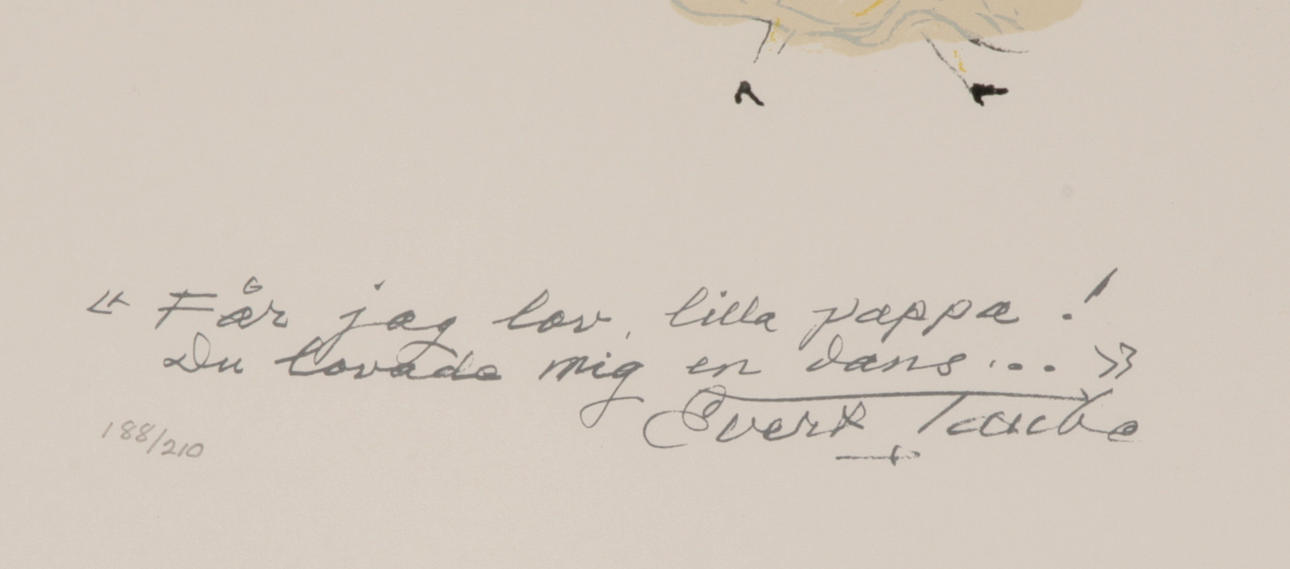 « Får jag lov, lilla pappa!
Du lovade mig en dans... »
Evert Taube
188/210